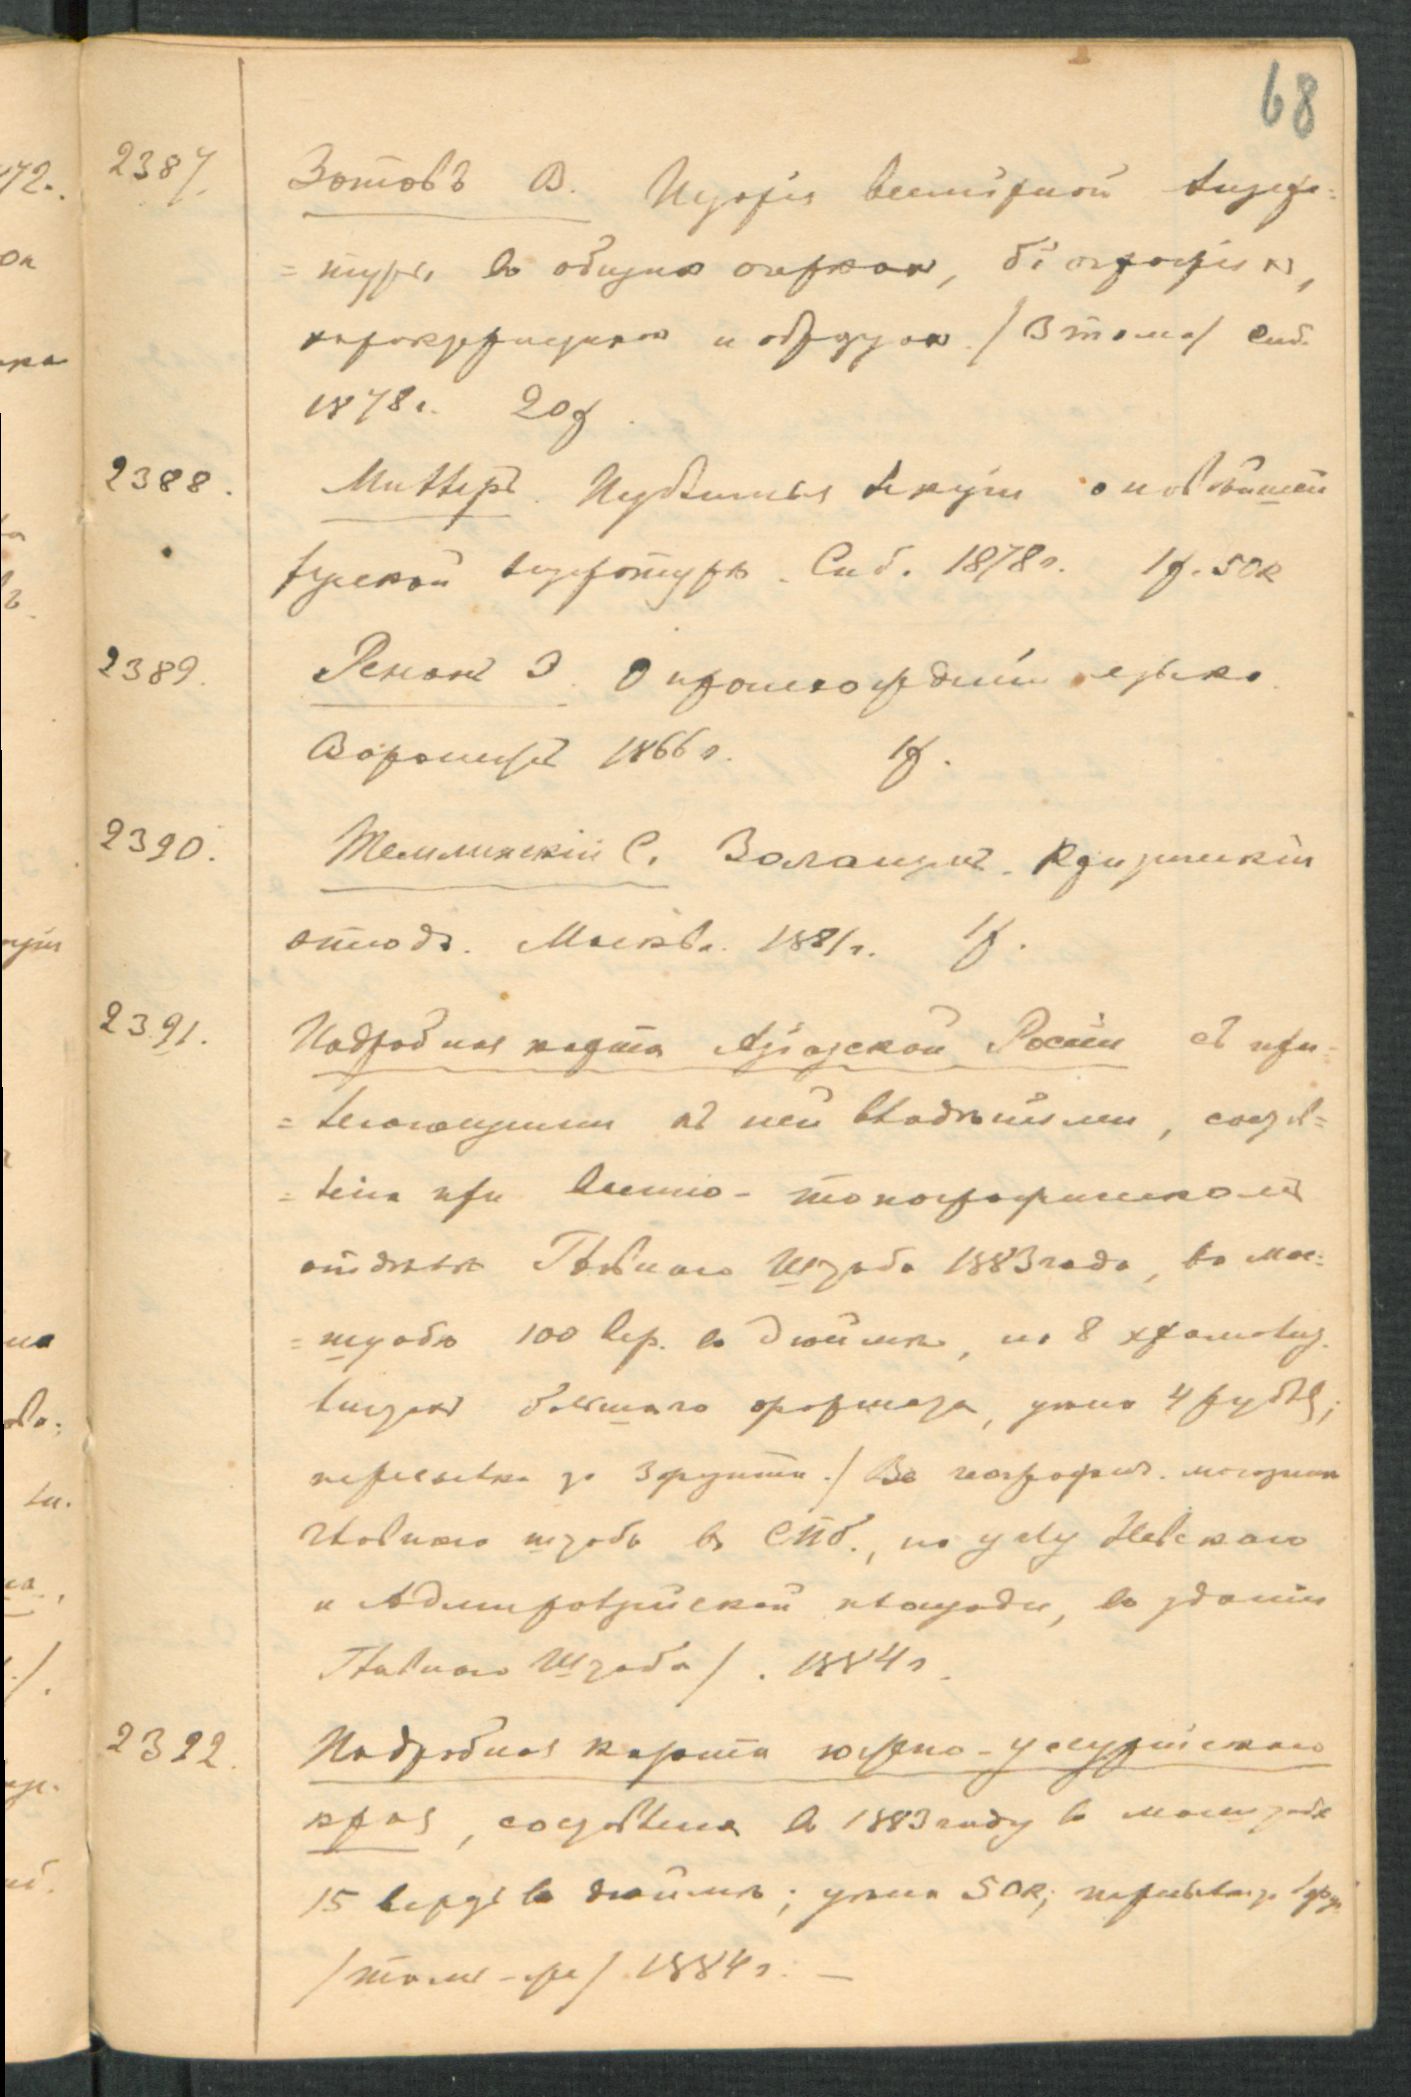 68
2387. Зотовъ В. Исторія всемірной литера=
=туры въ общихъ очеркахъ, біографіяхъ,
характеристикахъ и образцахъ. /3 тома/ Спб.
1878 г. 20 р.
2388. Миллеръ. Публичныя лекціи о новѣйшей
русской литературѣ. Спб. 1878 г. 1 р. 50 к
2389. Ренанъ Э. О происхожденіи языка.
Воронежъ 1866 г. 1 р.
2390. Темлинскій С. Золаизмъ. Критическій
этюдъ. Москва. 1881 г. 1 р.
2391. Подробная карта Азіатской Россіи съ при=
=легающими къ ней владѣніями, состав=
=лена при военно-топографическомъ
отдѣлѣ Главнаго Штаба 1883 года, въ мас=
=штабѣ 100 вер. въ дюймѣ, на 8 хромолит.
листахъ большаго формата, цѣна 4 рубля;
пересылка за 3 фунта. /Въ географич. магазинѣ
главнаго штаба въ СПб., на углу Невскаго
и Адмиралтейской площади, въ зданіи
Главнаго Штаба/. 1884 г.
2392. Подробная карта южно-уссурійскаго
края, составлена въ 1883 году въ масштабѣ
15 верстъ въ дюймѣ; цѣна 50 к; пересылка за 1 фун.
/тамъ-же/ 1884 г. —